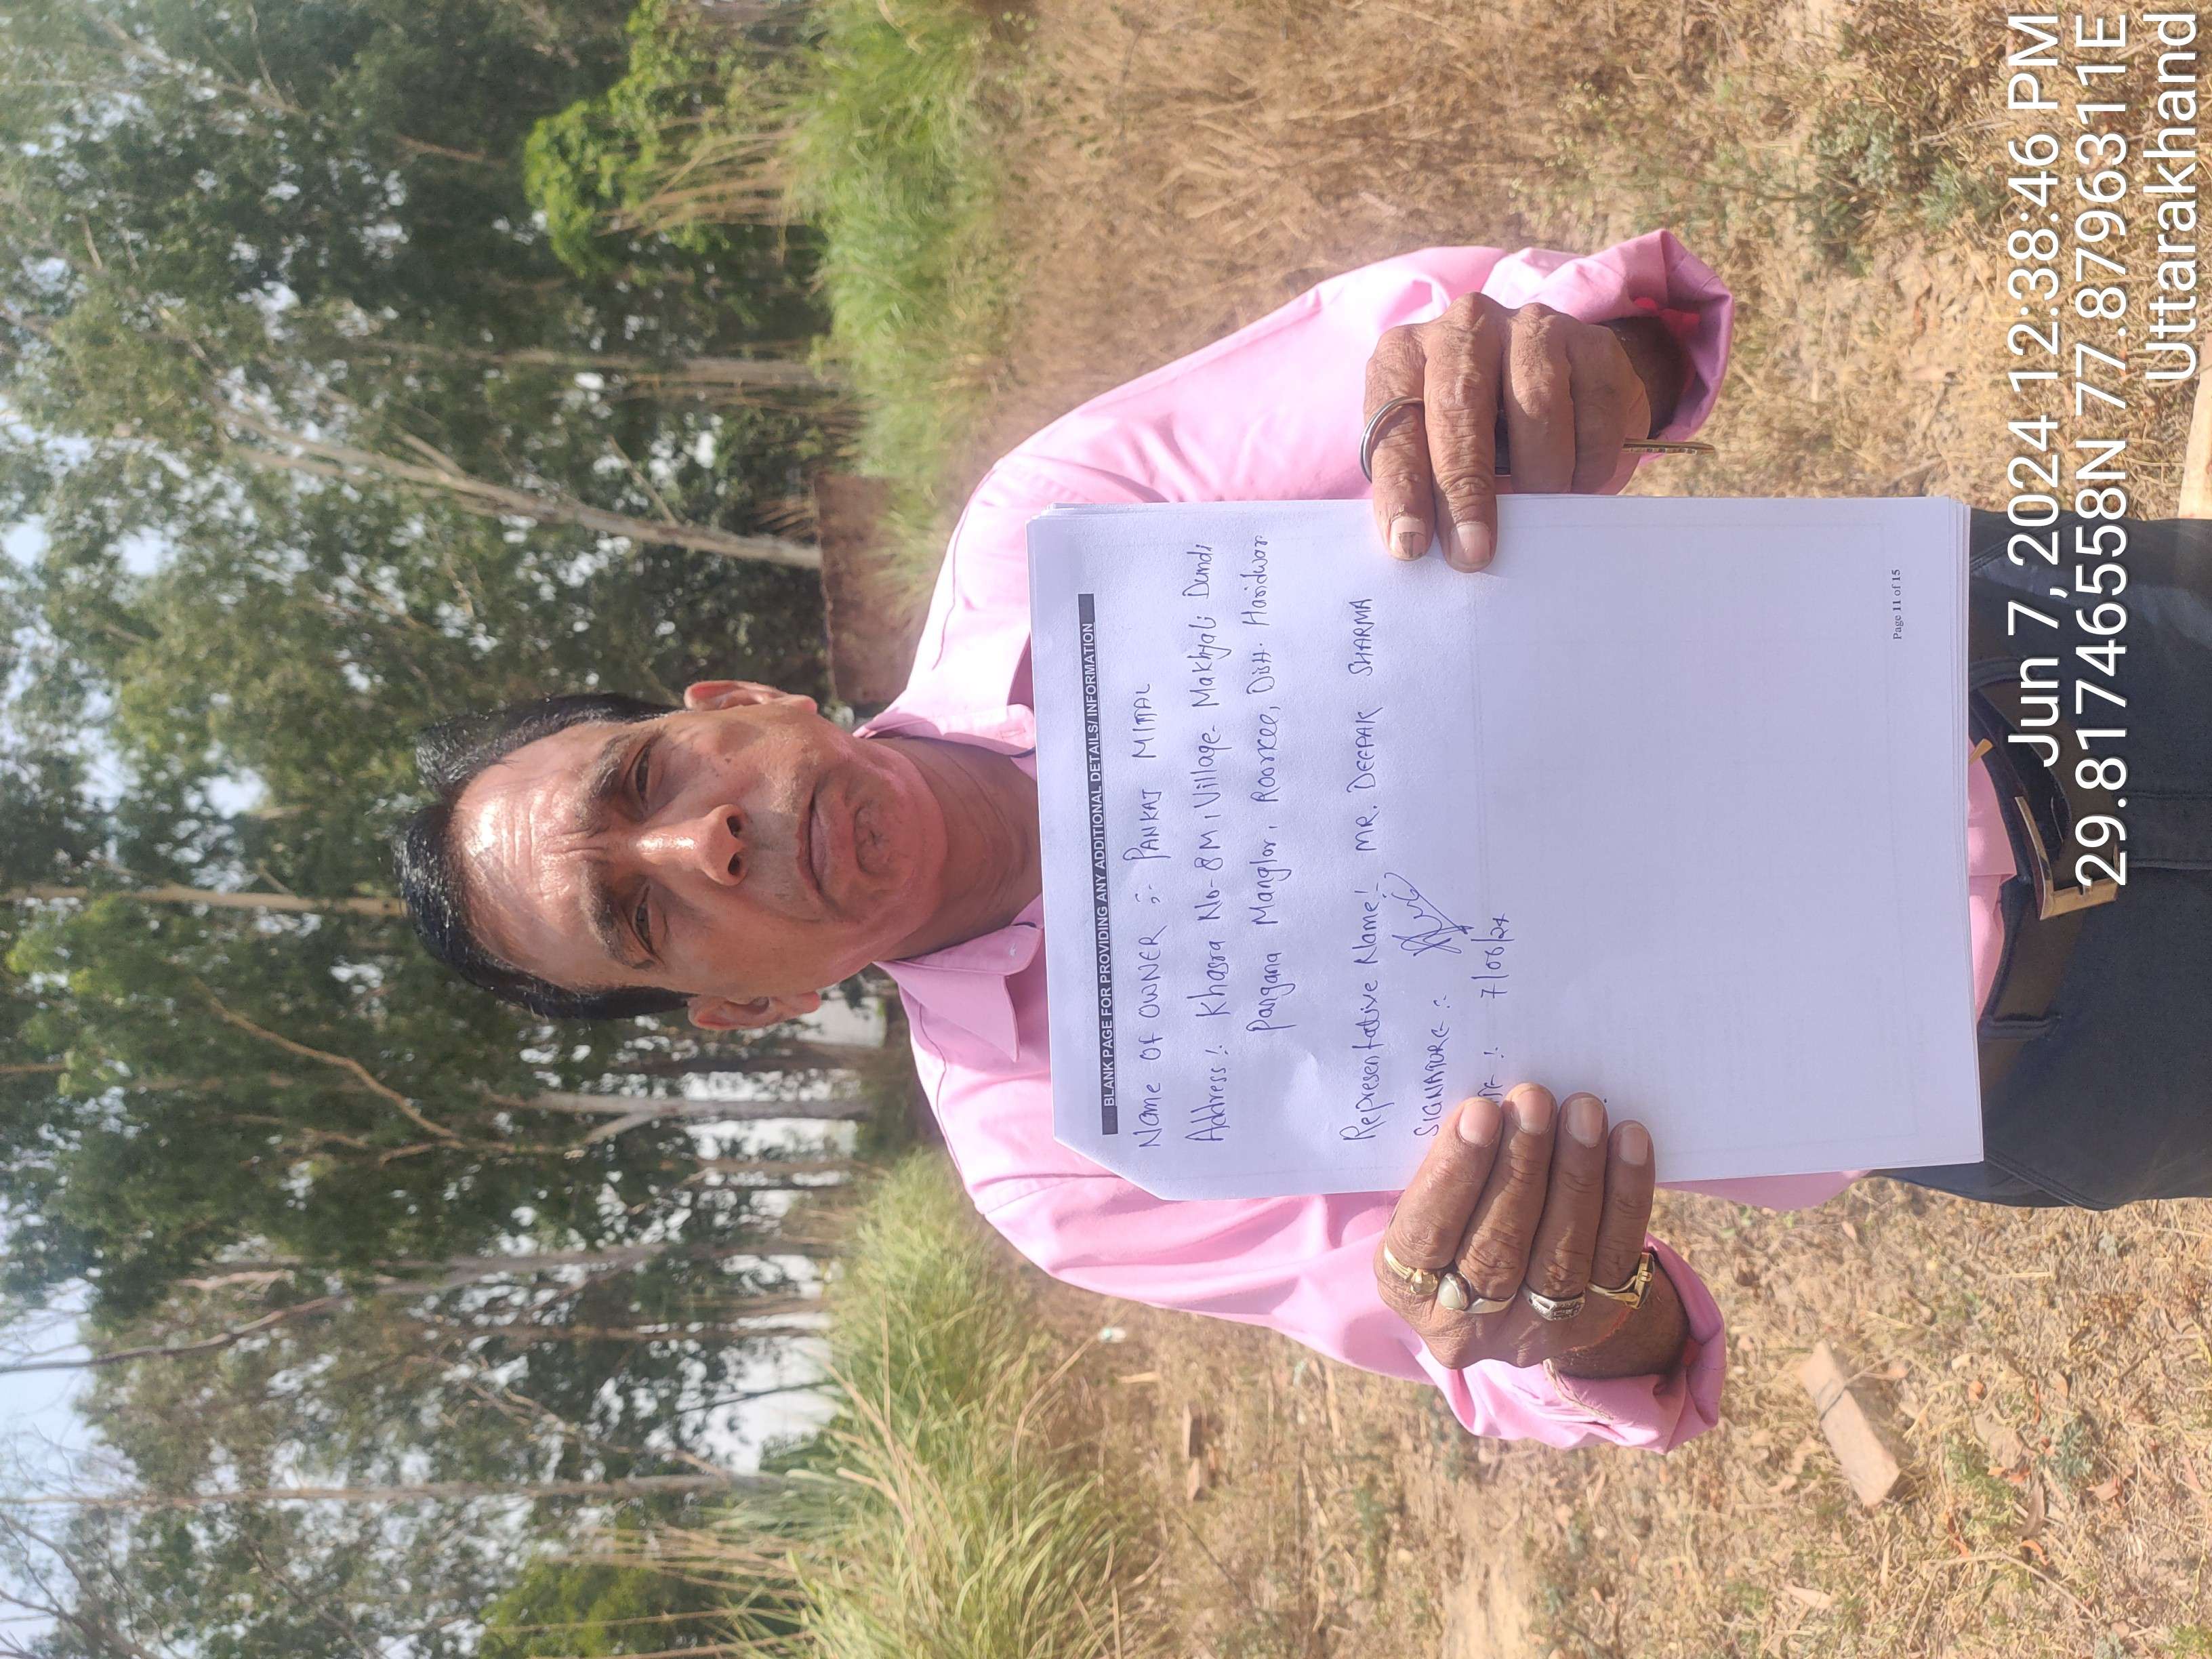 BLANK PAGE FOR PROVIDING ANY ADDITIONAL DETAILS/ INFORMATION
Name OF OWNER :- PANKAJ MITTAL
Address:- Khasra No- 8M, Village- Makhyali Dundi
Pargana Manglor, Roorkee, Distt. Haridwar
Representative Name:- MR. DEEPAK SHARMA
SIGNATURE :-
7/06/24
Page 11 of 15
Jun 7, 2024 12:38:46 PM
29.81746558N 77.8796311E
Uttarakhand